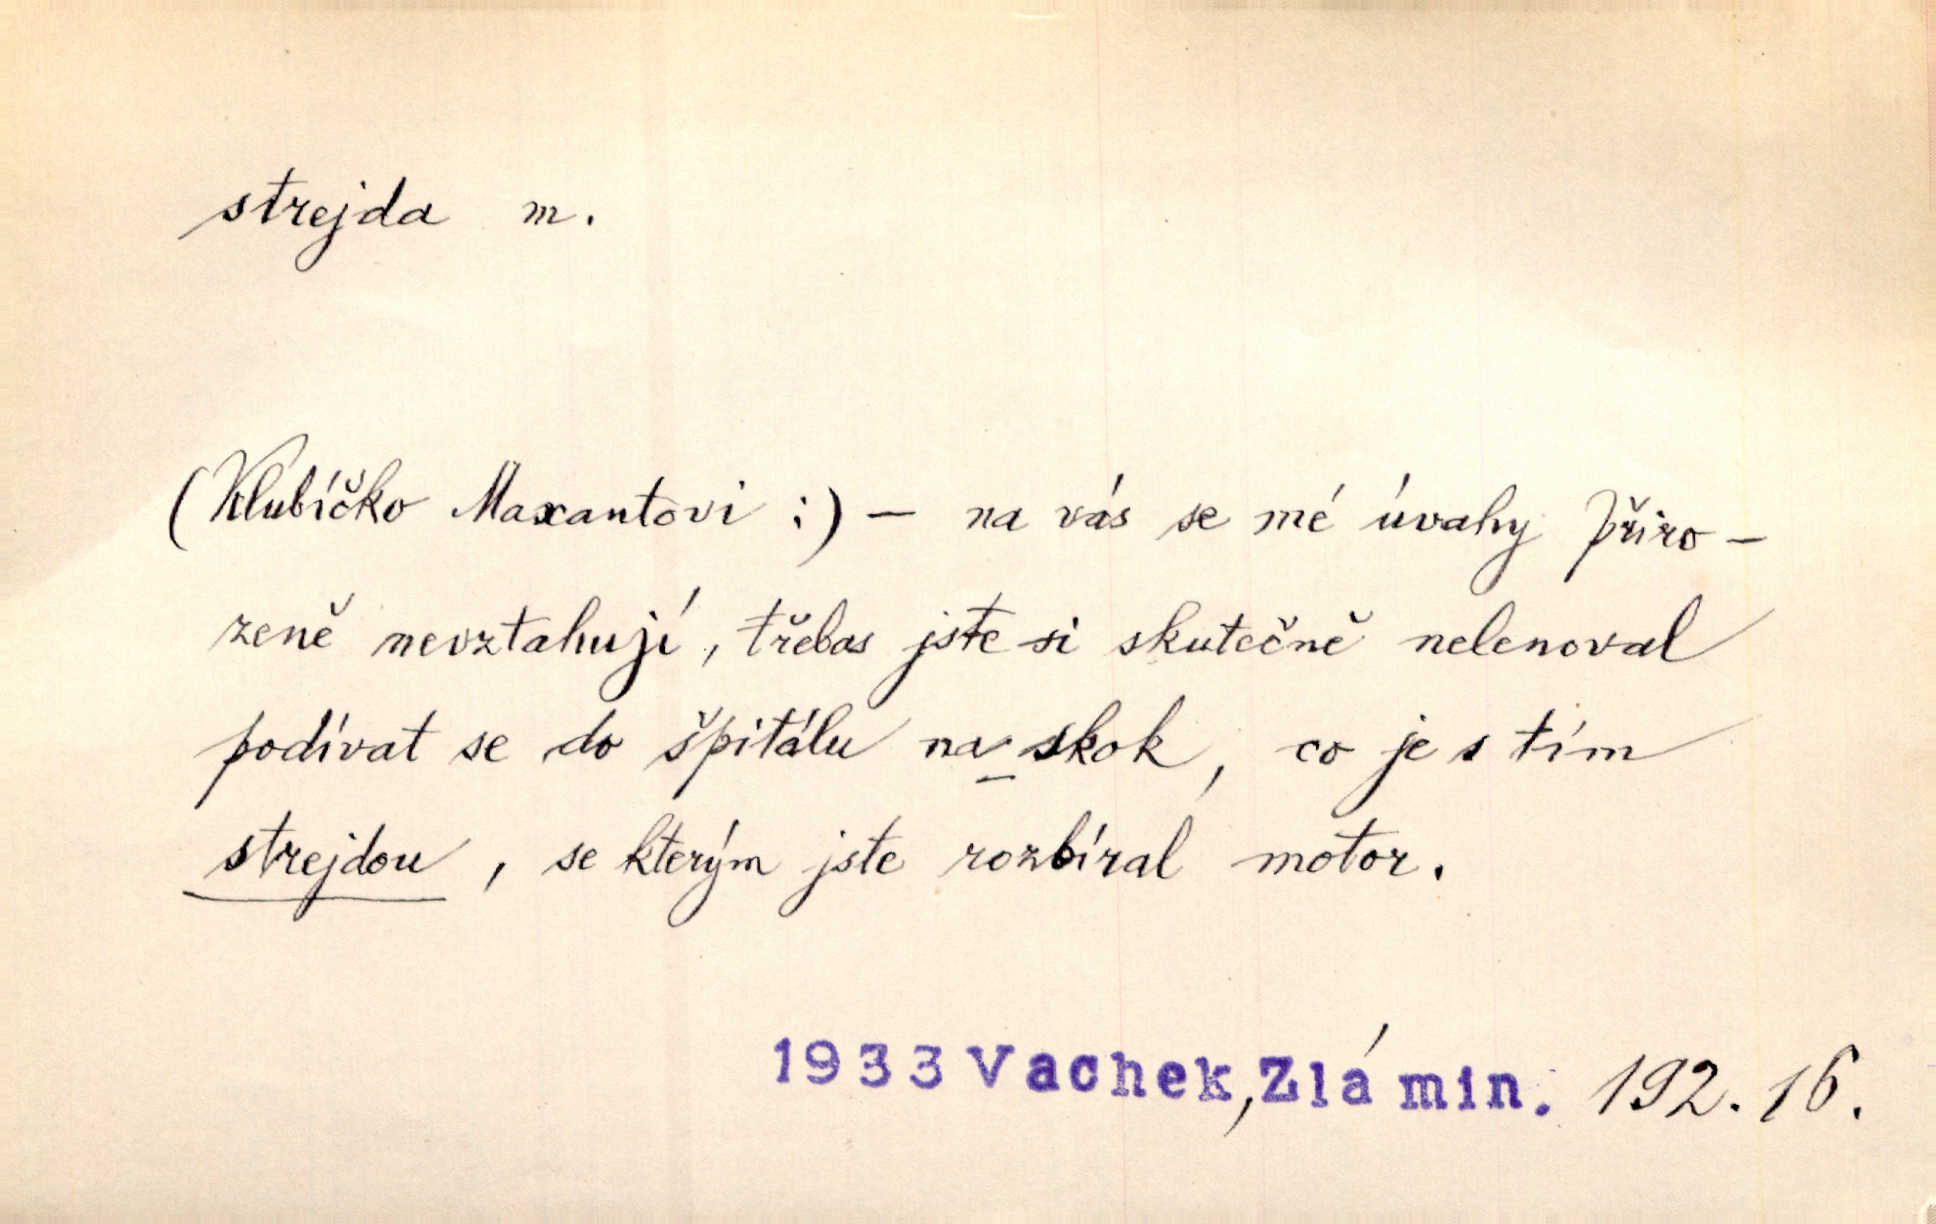 strejda m.
(Klubíčko Maxantovi :) – na vás se mé úvahy přiro-
zeně nevztahují, třebas jste si skutečně nelenoval
podívat se do špitálu na skok, co je s tím
strejdou, se kterým jste rozbíral motor.
1933 Vachek, Zlá min. 192. 16.